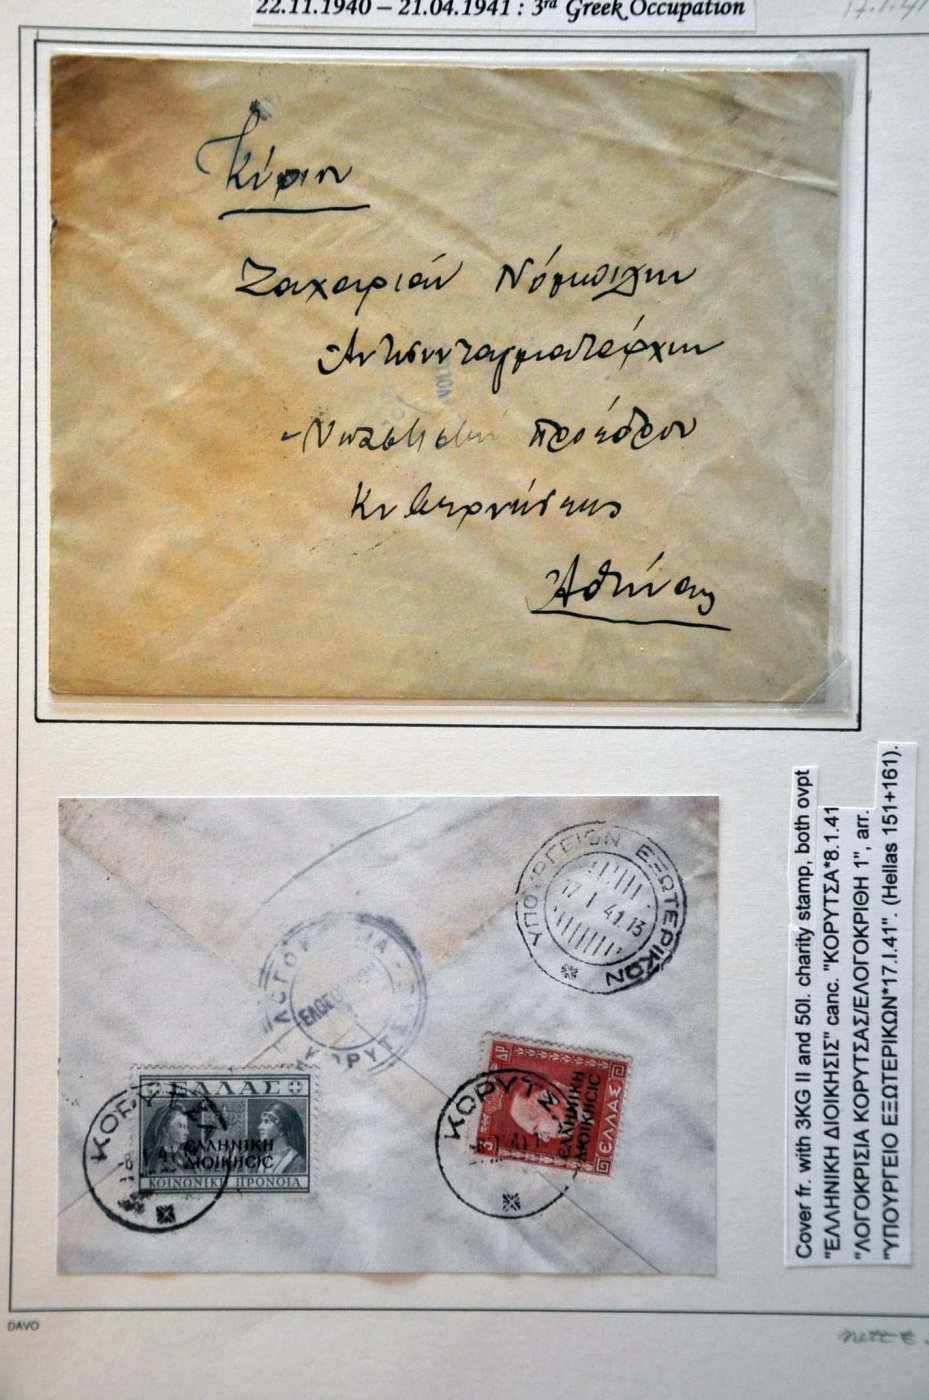 22.11.1940 – 21.04.1941 : 3rd Greek Occupation
Κύριον
Ζαχαριάν
Ἀντισυνταγματάρχην
προέδρου
Κυβερνήσεως
Ἀθήνας
ΥΠΟΥΡΓΕΙΟΝ ΕΞΩΤΕΡΙΚΩΝ
17 Ι 41.13
ΛΟΓΟΚΡΙΣΙΑ
ΚΟΡΥΤΣΑΣ
ΕΛΛΑΣ
ΕΛΛΗΝΙΚΗ
ΔΙΟΙΚΗСΙС
ΚΟΙΝΩΝΙΚΗ ΠΡΟΝΟΙΑ
ΚΟΡΥΤΣΑ
ΔΡ
3
ΕΛΛΑΣ
ΕΛΛΗΝΙΚΗ
ΔΙΟΙΚΗСΙС
ΚΟΡΥΤΣΑ
Cover fr. with 3KG II and 50l. charity stamp, both ovpt
"ΕΛΛΗΝΙΚΗ ΔΙΟΙΚΗΣΙΣ" canc. "ΚΟΡΥΤΣΑ*8.1.41
"ΛΟΓΟΚΡΙΣΙΑ ΚΟΡΥΤΣΑΣ/ΕΛΟΓΟΚΡΙΘΗ 1", arr.
"ΥΠΟΥΡΓΕΙΟ ΕΞΩΤΕΡΙΚΩΝ*17.I.41". (Hellas 151+161).
DAVO